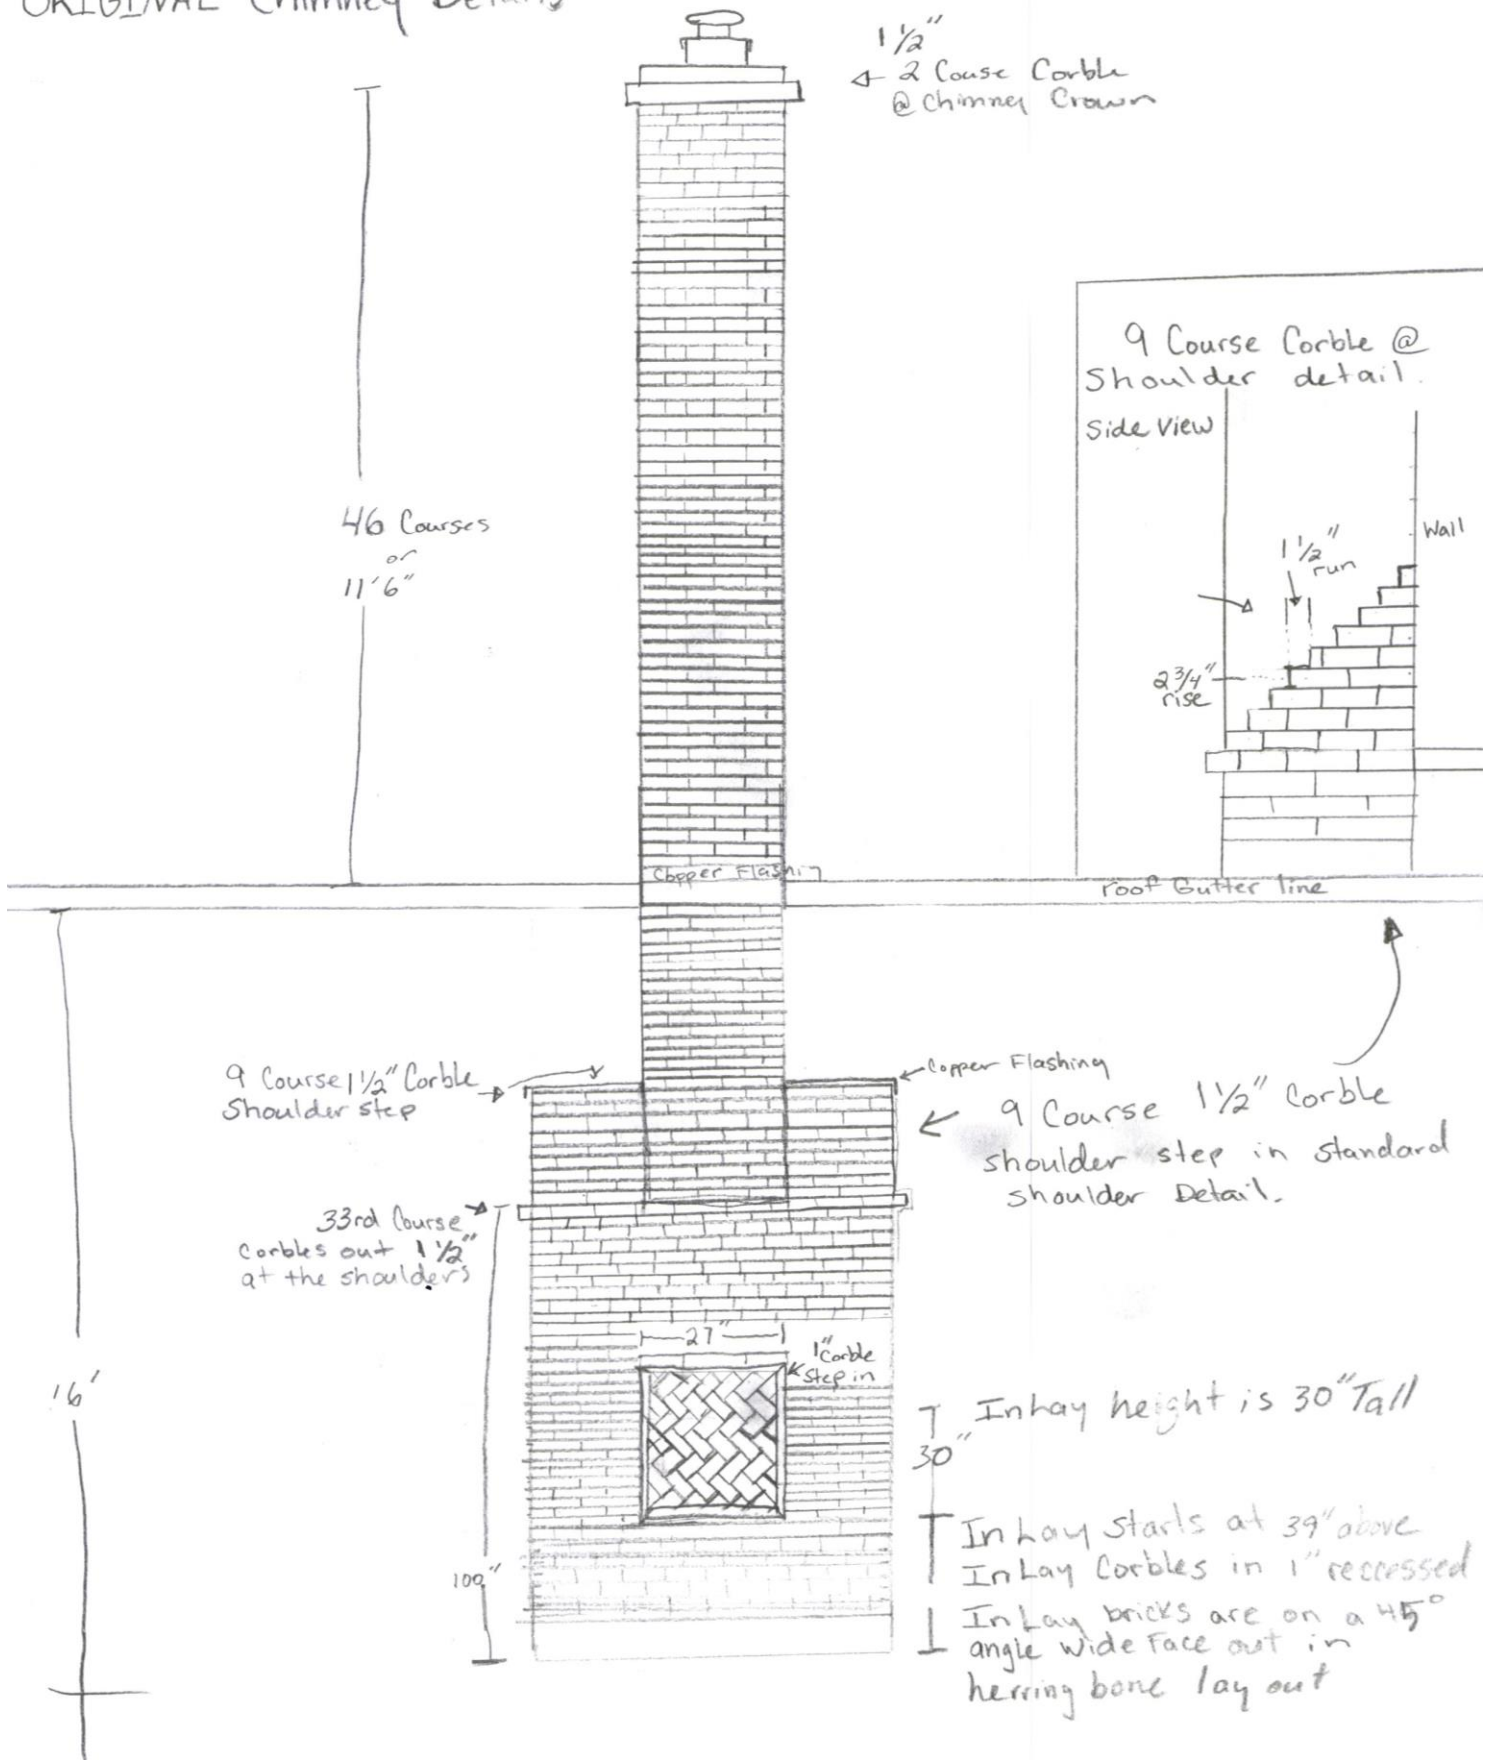 ORIGINAL Chimney Details
1 1/2"
2 Couse Corble
@ Chimney Crown
46 Courses
or
11'6"
9 Course Corble @
Shoulder detail.
Side View
Wall
1 1/2"
run
2 3/4"
rise
Copper Flashing
roof Gutter line
9 Course 1 1/2" Corble
Shoulder step
Copper Flashing
9 Course 1 1/2" Corble
shoulder step in standard
shoulder Detail.
33rd Course
Corbles out 1 1/2"
at the shoulders
27"
1" Corble
step in
16'
InLay height is 30" Tall
30"
InLay starts at 39" above
InLay Corbles in 1" reccessed
InLay bricks are on a 45°
angle wide Face out in
herring bone lay out
100"